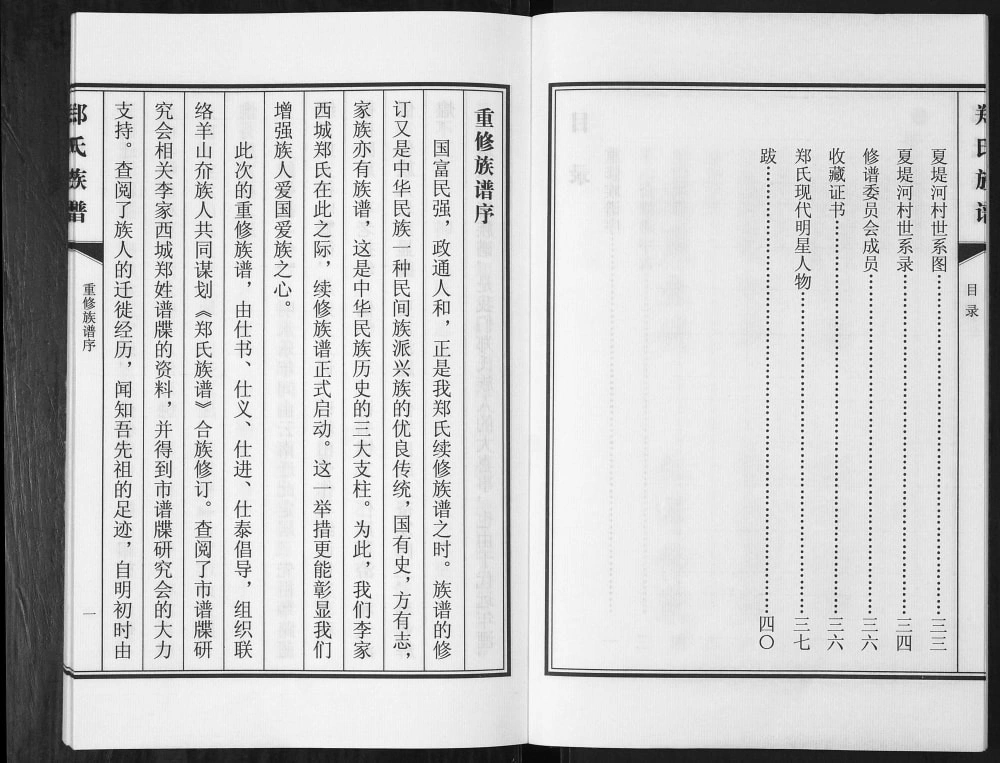 郑氏族谱
目录
夏堤河村世系图……三三
夏堤河村世系录……三四
修谱委员会成员……三六
收藏证书……三六
郑氏现代明星人物……三七
跋……四〇
重修族谱序
国富民强，政通人和，正是我郑氏续修族谱之时。族谱的修
订又是中华民族一种民间族派兴族的优良传统，国有史，方有志，
家族亦有族谱，这是中华民族历史的三大支柱。为此，我们李家
西城郑氏在此之际，续修族谱正式启动。这一举措更能彰显我们
增强族人爱国爱族之心。
此次的重修族谱，由仕书、仕义、仕进、仕泰倡导，组织联
络羊山夼族人共同谋划《郑氏族谱》合族修订。查阅了市谱牒研
究会相关李家西城郑姓谱牒的资料，并得到市谱牒研究会的大力
支持。查阅了族人的迁徙经历，闻知吾先祖的足迹，自明初时由
郑氏族谱
重修族谱序
一